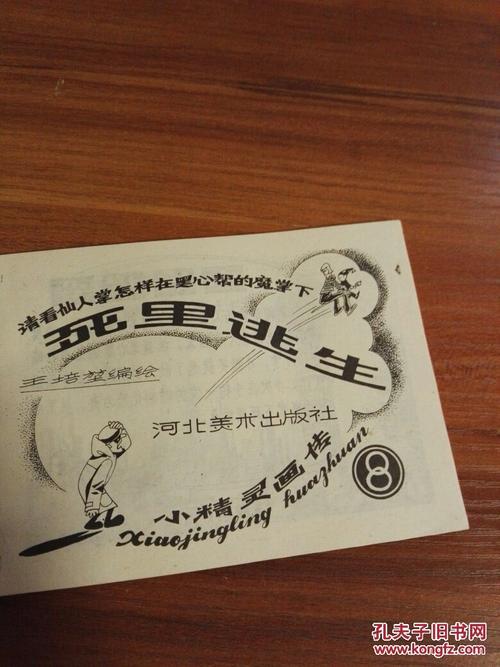 请看仙人掌怎样在黑心帮的魔掌下
死里逃生
王培堃编绘
河北美术出版社
小精灵画传
Xiaojingling huazhuan
8
孔夫子旧书网
www.kongfz.com